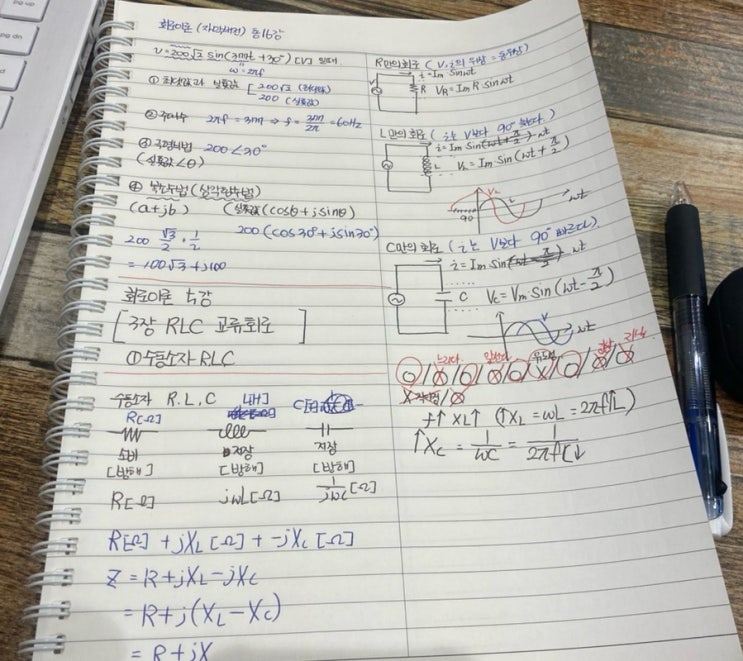 회로이론
v=200√2 sin(377t+30°) [V] 일때
ω=2πf
① 최댓값과 실효값 [200√2 (최댓값)
200 (실효값)
② 주파수 2πf=377 ⇒ f=377/2π=60Hz
③ 극형식법 200∠30°
(실효값∠θ)
④ 복소수법 (삼각함수법)
(a+jb) (실효값(cosθ+jsinθ)
200 (cos30°+jsin30°)
200 √3/2 · 1/2
= 100√3+j100
회로이론
[3장 RLC 교류회로]
① 수동소자 RLC
수동소자 R. L. C
R[Ω] L[H] C[F]
소비 저장 저장
[방해] [방해] [방해]
R[Ω] jωL[Ω] 1/jωC[Ω]
R[Ω] +jXL[Ω] +-jXc[Ω]
Z = R+jXL-jXc
= R+j(XL-Xc)
= R+jX
R만의회로 (V, i의 위상=동위상)
i=Im Sinωt
R VR=Im R Sinωt
L만의 회로 (i는 V보다 90°
i=Im Sin ωt
L VL=Im Sin(ωt+π/2)
VL i ωt
90
C만의 회로 (i는 V보다 90° 빠르다).
i=Im Sin ωt
C Vc=Vm Sin(ωt-π/2)
V ωt
f↑ XL↑ (↑XL=ωL=2πf↑L)
↑Xc=1/ωC=1/2πfC↓